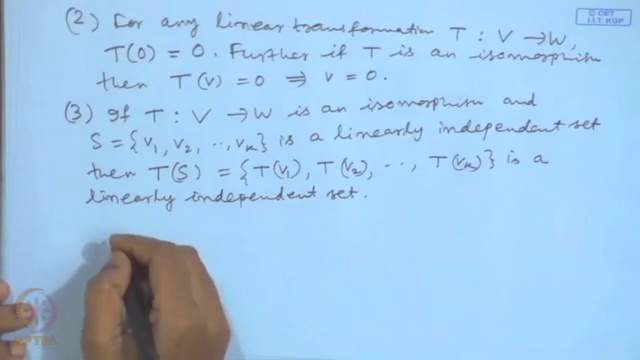 © CET
I.I.T. KGP
(2) For any linear transformation T : V → W,
T(0) = 0. Further if T is an isomorphism
then T(v) = 0 ⇒ v = 0.
(3) If T : V → W is an isomorphism and
S = {v₁, v₂, .., vₖ} is a linearly independent set
then T(S) = {T(v₁), T(v₂), .., T(vₖ)} is a
linearly independent set.
NPTEL